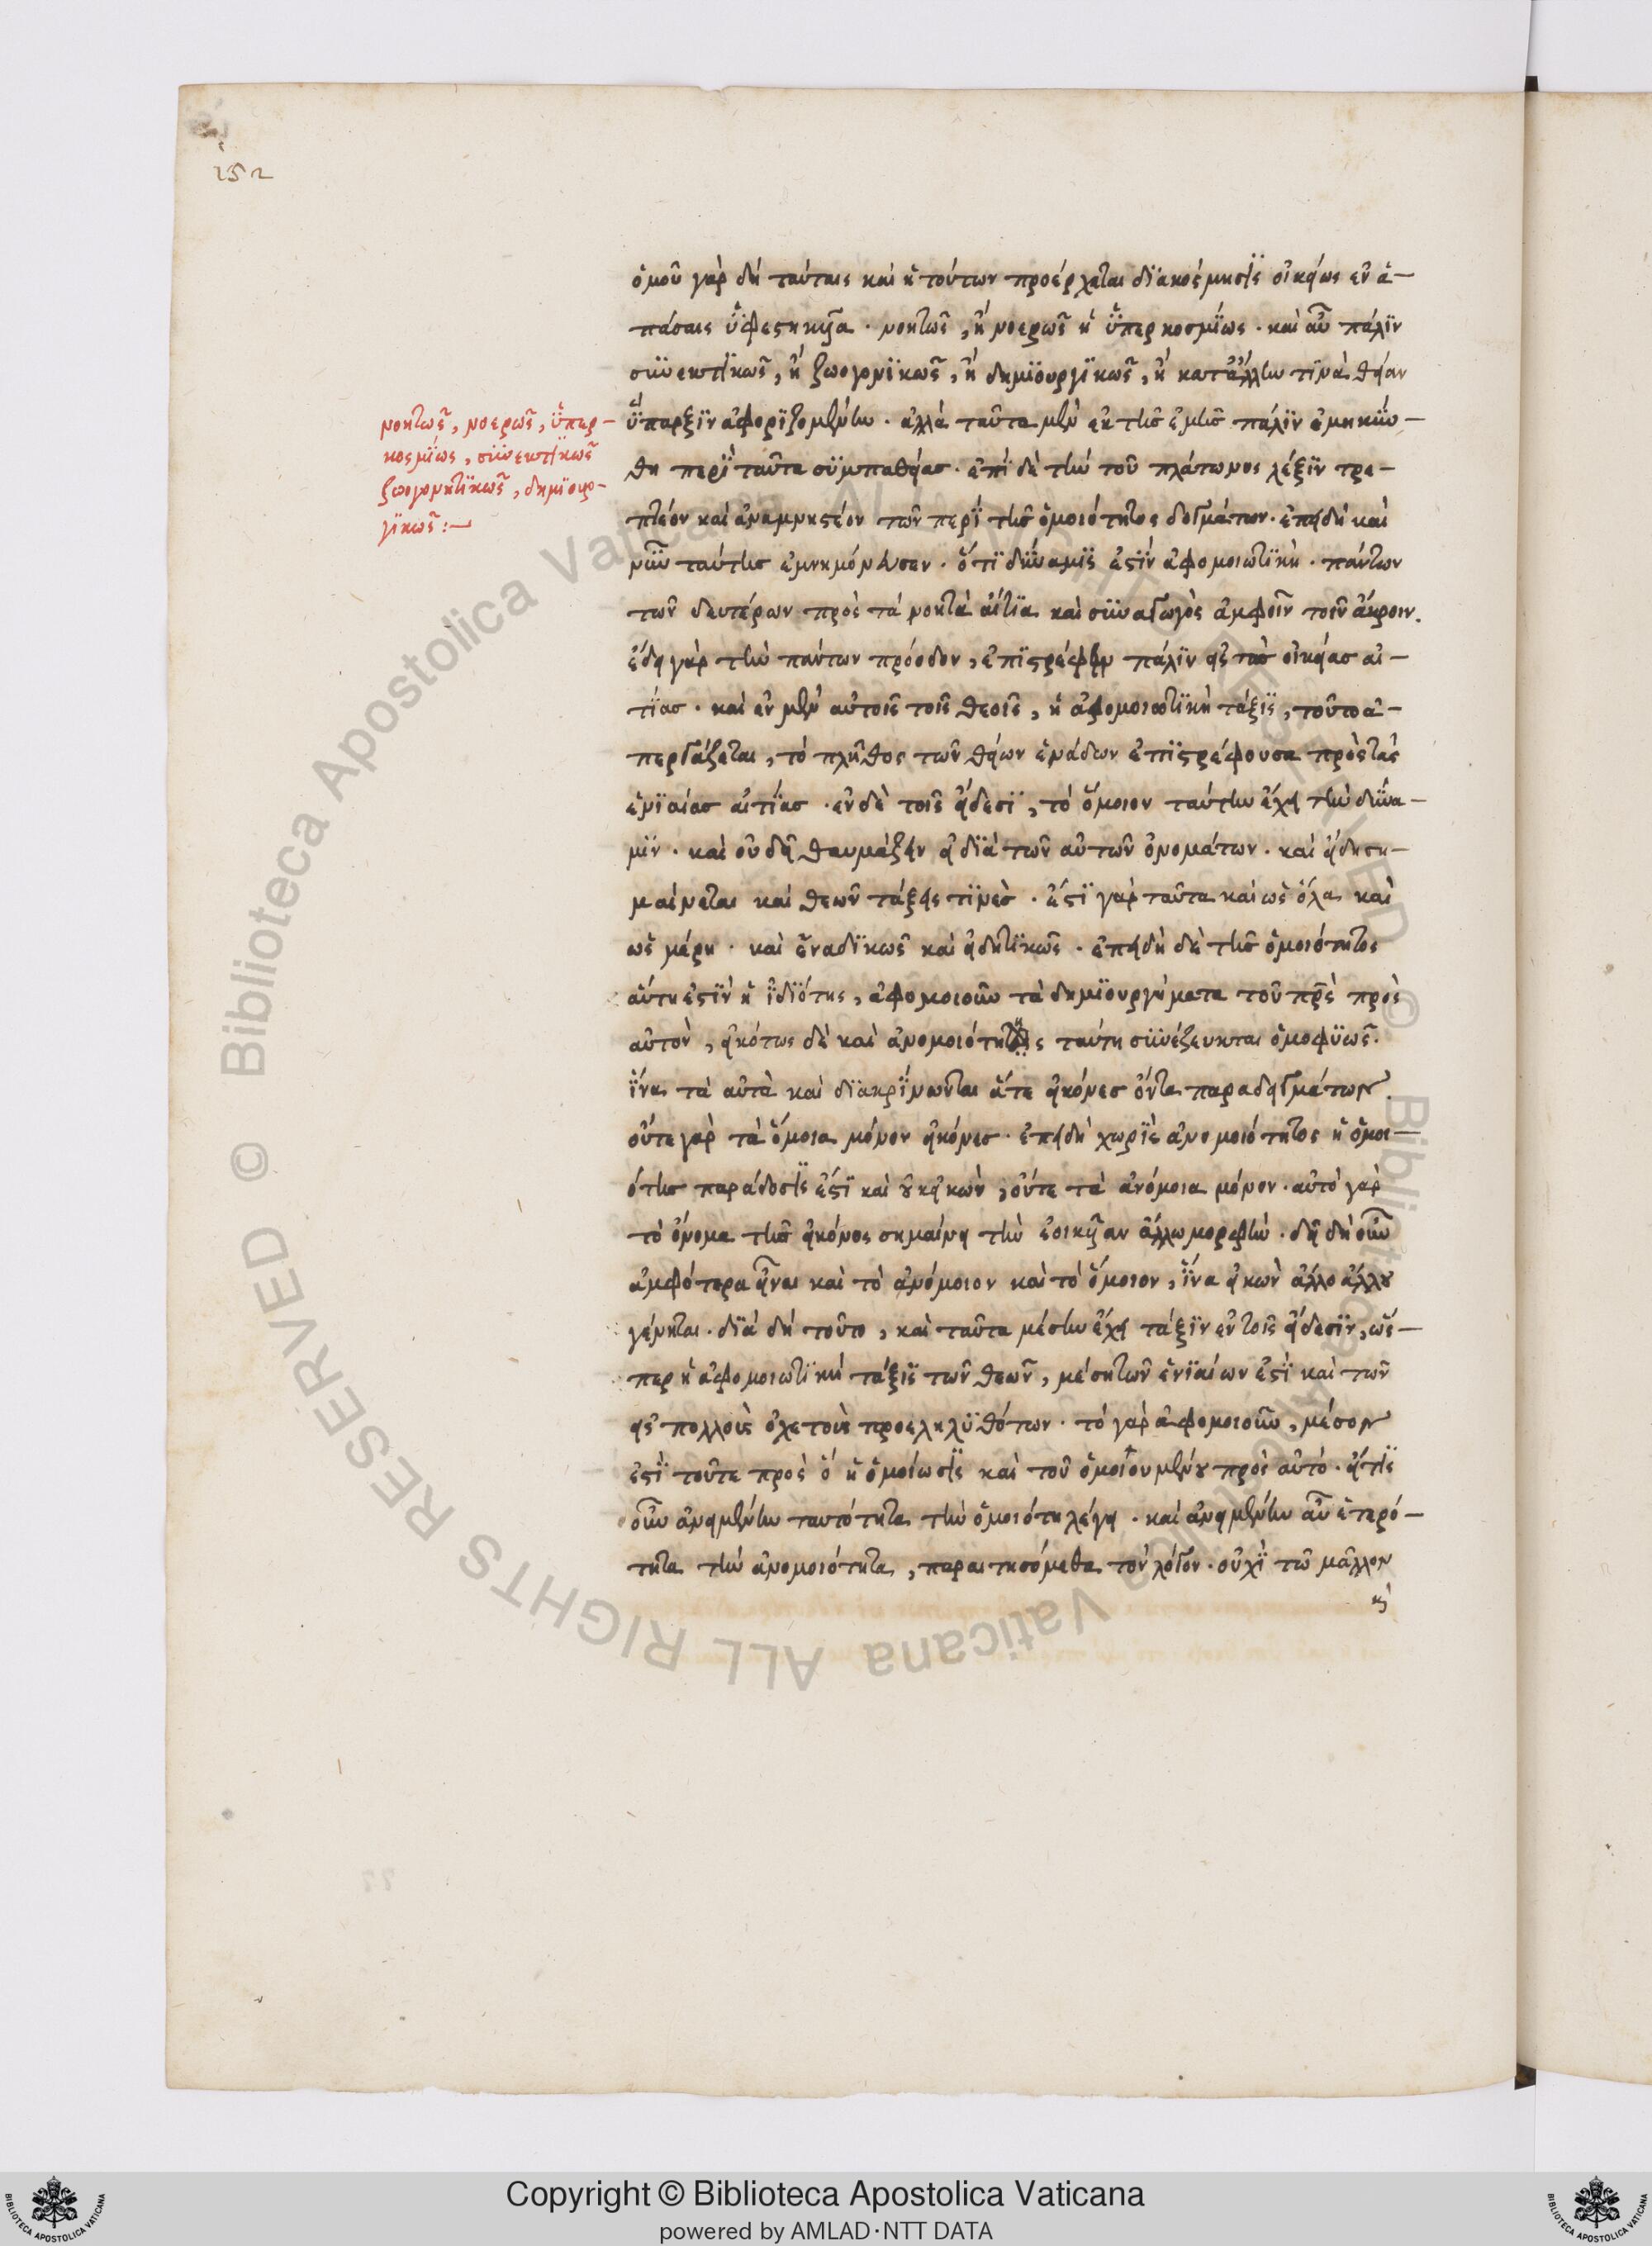 252
ὁμοῦ γὰρ δὴ ταύταις καὶ ἡ τούτων προέρχεται διακόσμησις οἰκείως ἐν ἁ-
πάσαις ὑφεστηκυῖα · νοητῶς, ἢ νοερῶς ἢ ὑπερκοσμίως · καὶ αὖ πάλιν
συνεκτικῶς, ἢ ζωογονικῶς, ἢ δημιουργικῶς, ἢ κατ' ἄλλην τινὰ θείαν
ὕπαρξιν ἀφοριζομένην · ἀλλὰ ταῦτα μὲν ἐκ τῆς ἐμῆς πάλιν ἐμηκύν-
θη περὶ ταῦτα συμπαθείας · ἐπὶ δὲ τὴν τοῦ πλάτωνος λέξιν τρε-
πτέον καὶ ἀναμνηστέον τῶν περὶ τῆς ὁμοιότητος δογμάτων · ἐπειδὴ καὶ
νῦν ταύτης ἐμνημόνευσεν · ὅτι δύναμις ἐστὶν ἀφομοιωτικὴ · πάντων
τῶν δευτέρων πρὸς τὰ νοητὰ αἴτια καὶ συναγωγὸς ἀμφοῖν τοῖν ἄκροιν.
ἔδει γὰρ τὴν πάντων πρόοδον, ἐπιστρέφειν πάλιν εἰς τὰς οἰκείας αἰ-
τίας · καὶ ἐν μὲν αὐτοῖς τοῖς θεοῖς, ἡ ἀφομοιωτικὴ τάξις, τοῦτο ἀ-
περγάζεται, τὸ πλῆθος τῶν θείων ἑνάδων ἐπιστρέφουσα πρὸς τὰς
ἑνιαίας αἰτίας · ἐν δὲ τοῖς εἴδεσι, τὸ ὅμοιον ταύτην ἔχει τὴν δύνα-
μιν · καὶ οὐ δεῖ θαυμάζειν εἰ διὰ τῶν αὐτῶν ὀνομάτων · καὶ εἴδη ση-
μαίνεται καὶ θεῶν τάξεις τινὲς · ἔστι γὰρ ταῦτα καὶ ὡς ὅλα καὶ
ὡς μέρη · καὶ ἑναδικῶς καὶ εἰδητικῶς · ἐπειδὴ δὲ τῆς ὁμοιότητος
αὕτη ἐστὶν ἡ ἰδιότης, ἀφομοιοῦν τὰ δημιουργήματα τοῦ πρς πρὸς
αὐτὸν, εἰκότως δὲ καὶ ἀνομοιότης ταύτη συνέζευκται ὁμοφυῶς.
ἵνα τὰ αὐτὰ καὶ διακρίνωνται ἅτε εἰκόνες ὄντα παραδειγμάτων.
οὔτε γὰρ τὰ ὅμοια μόνον εἰκόνες · ἐπειδὴ χωρὶς ἀνομοιότητος ἡ ὁμοι-
ότης παράδοσις ἐστὶ καὶ οὐκ εἰκὼν, οὔτε τὰ ἀνόμοια μόνον · αὐτὸ γὰρ
τὸ ὄνομα τῆς εἰκόνος σημαίνει τὴν ἐοικυῖαν ἄλλω μορφὴν · δεῖ δὴ οὖν
ἀμφότερα εἶναι καὶ τὸ ἀνόμοιον καὶ τὸ ὅμοιον, ἵνα εἰκὼν ἄλλο ἄλλου
γένηται · διὰ δὴ τοῦτο, καὶ ταῦτα μέσην ἔχει τάξιν ἐν τοῖς εἴδεσιν, ὥς-
περ ἡ ἀφομοιωτικὴ τάξις τῶν θεῶν, μέση τῶν ἑνιαίων ἐστὶ καὶ τῶν
εἰς πολλοὺς ὀχετοὺς προεληλυθότων · τὸ γὰρ ἀφομοιοῦν, μέσον
ἐστὶ τοῦτε πρὸς ὃ ἡ ὁμοίωσις καὶ τοῦ ὁμοιουμένου πρὸς αὐτό · εἴ τις
οὖν ἀνειμένην ταυτότητα τὴν ὁμοιότη λέγει · καὶ ἀνειμένην αὖ ἑτερό-
τητα τὴν ἀνομοιότητα, παραιτησόμεθα τὸν λόγον · οὐχὶ τῶ μᾶλλον
κὶ
νοητῶς, νοερῶς, ὑπερ-
κοσμίως, συνεκτικῶς
ζωογονητικῶς, δημιουρ-
γικῶς :-
Copyright © Biblioteca Apostolica Vaticana
powered by AMLAD·NTT DATA
© Biblioteca Apostolica Vaticana ALL RIGHTS RESERVED
© Biblioteca Apostolica Vaticana ALL RIGHTS RESERVED